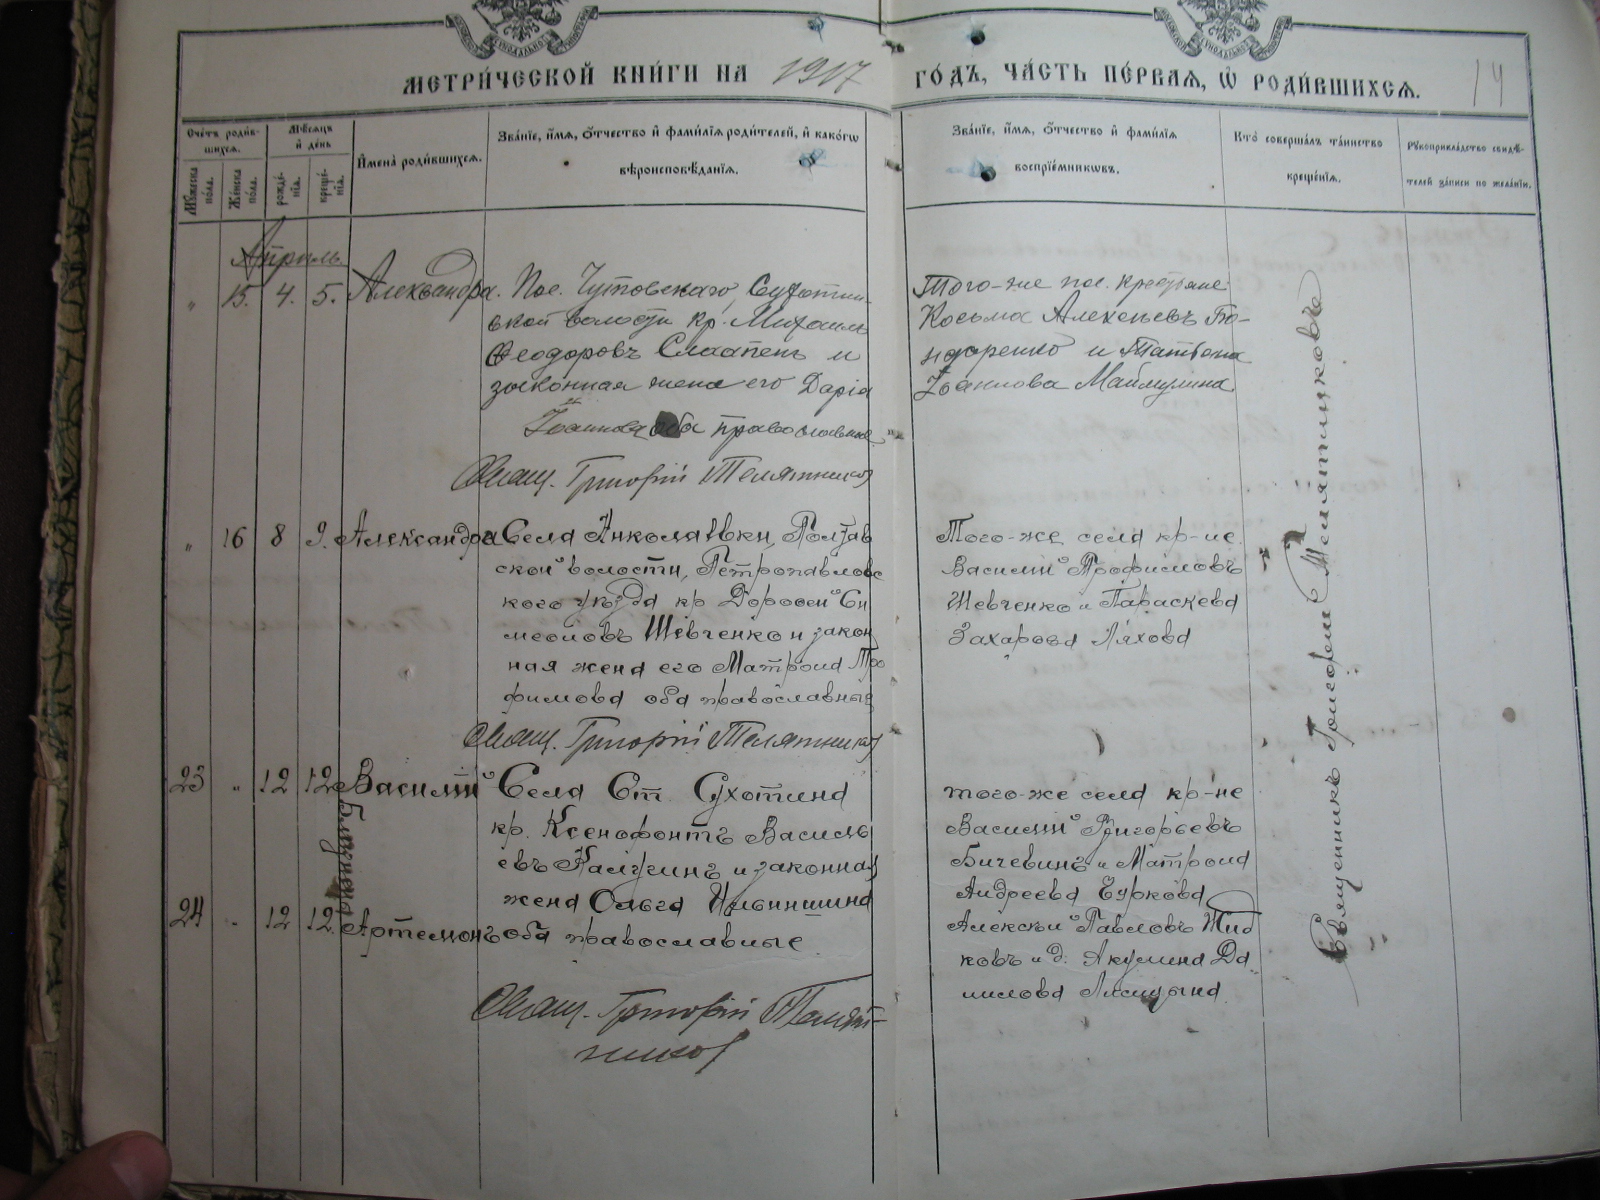 МЕТРИ́ЧЕСКОЙ КНИ́ГИ НА 1917 ГО́ДЪ, ЧА́СТЬ ПЕ́РВАѦ, Ѡ҆ РОДИ́ВШИХСѦ. 14
Сче́тъ роди́вшихсѧ.
Мꙋ́жеска по́ла.
Же́нска по́ла.
Мѣ́сяцъ и҆ де́нь
рожде́нїѧ.
креще́нїѧ.
И҆мена̀ роди́вшихсѧ.
Зва́нїе, и҆́мѧ, ѻ҆́тчество и҆ фами́лїѧ роди́телей, и҆ како́гѡ
вѣроисповѣ́данїѧ.
Зва́нїе, и҆́мѧ, ѻ҆́тчество и҆ фами́лїѧ
воспрїе́мникѡвъ.
Кто̀ соверша́лъ та́инство
креще́нїѧ.
Рꙋкоприкла́дство свидѣ́-
телей за́писи по жела́нїю.
Апрель.
" 15. 4. 5. Александра. Пос. Чутовскаго, Сухотин-
ской волости кр. Михаилъ
Ѳеодоровъ и
законная жена его Дарія
Іоаннова оба православные
Свящ. Григорій Телятников
Того-же пос. крестьяне
Косьма Алексѣевъ Бо-
ндаренко и Татьяна
Іоаннова Маймулина
" 16 8 9. Александра Села Николаевки, Полтав
ской волости, Петропавловс
кого уѣзда кр Дороѳей Си
меоновъ Шевченко и закон
ная жена его Матрона Тро
фимова оба православные
Свящ. Григорій Телятников
Того-же села кр-не
Василий Трофимовъ
Шевченко и Параскева
Захарова Ляхова
23 " 12 12 Василій Близнецы Села Ст. Сухотина
кр. Ксенофонтъ Василь
евъ Калугинъ и законная
жена Ольга Ильинишна
24 " 12 12 Артемонъ оба православные
Свящ. Григорій Телят-
ников
того-же села кр-не
Василий Григорьевъ
Бичевинъ и Матрона
Андреева Чуркова
Алексѣй Павловъ Жид
ковъ и д. Акулина Да
нилова Лисицына
Священникъ Григорій Телятниковъ